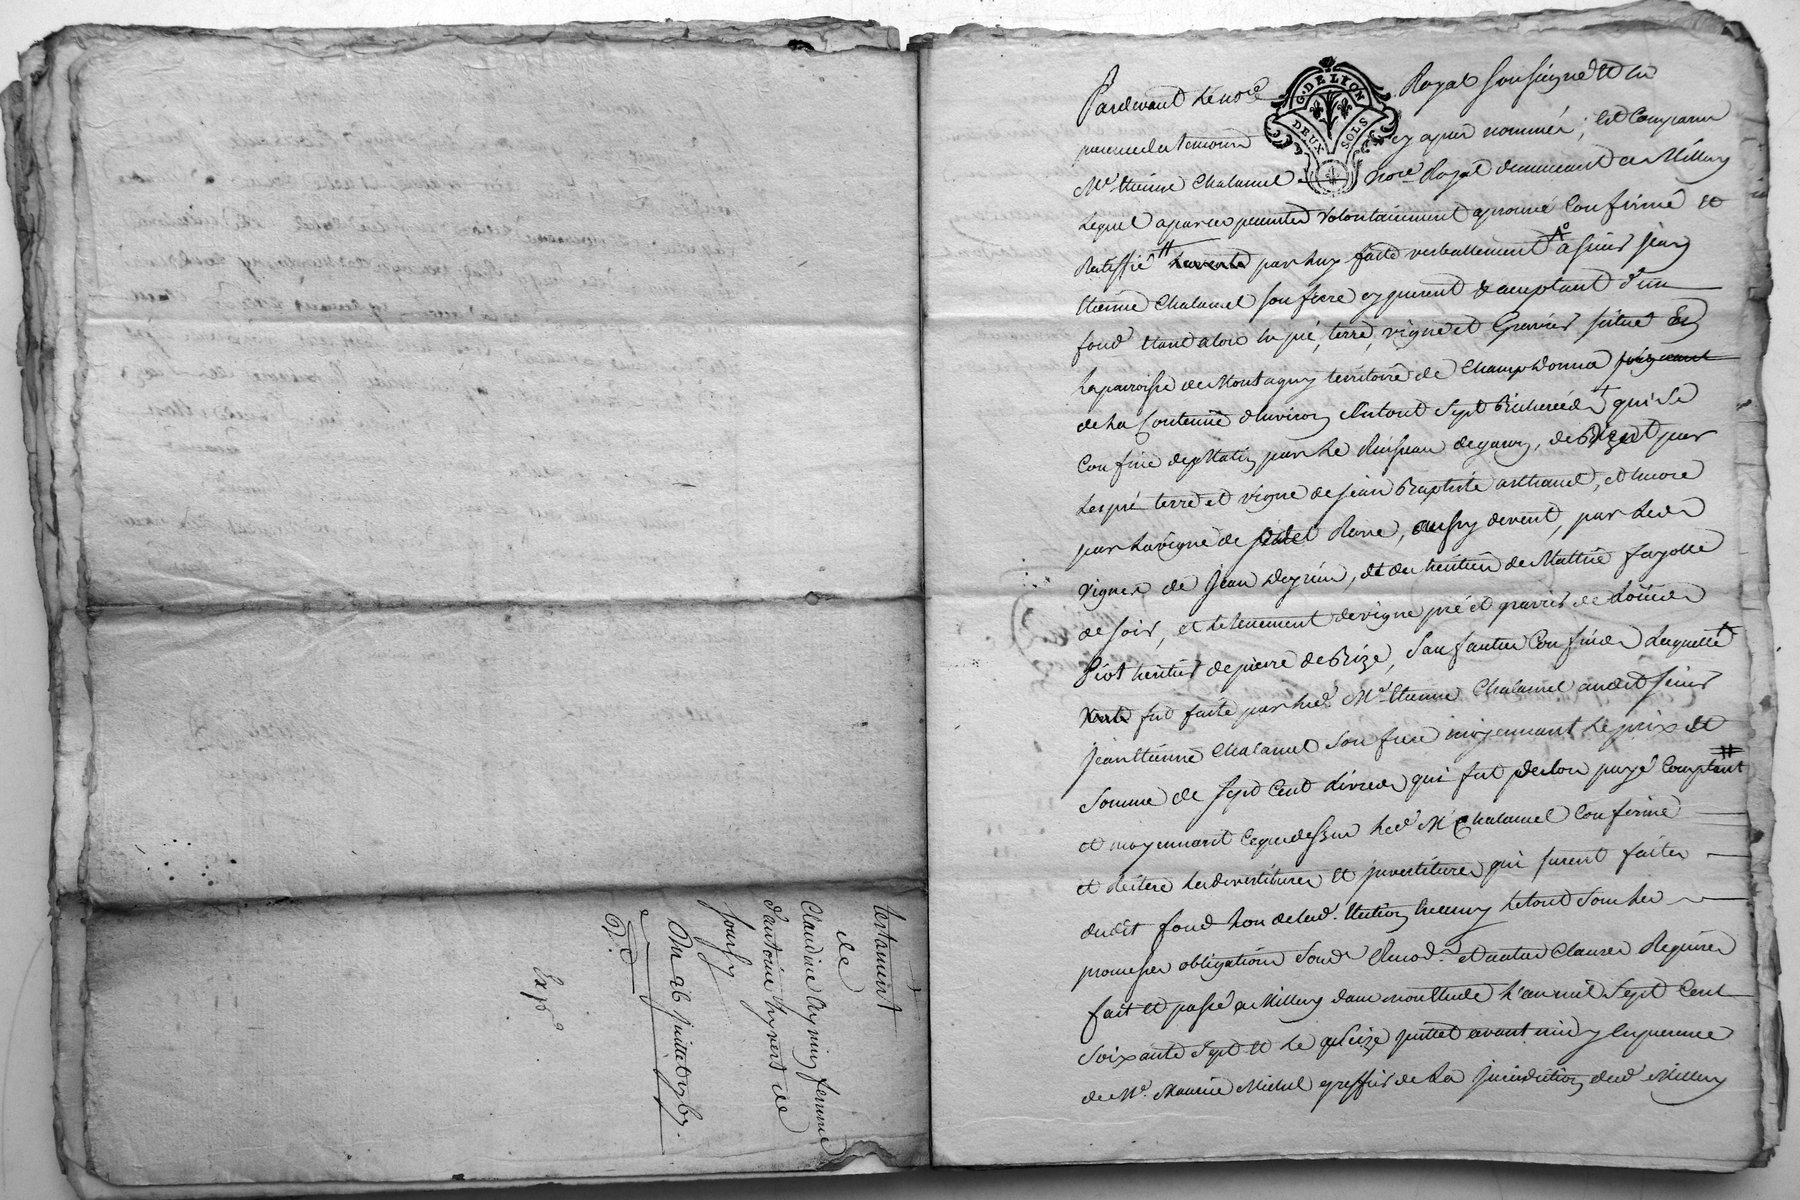 testament
de
Claudine Aymin femme
d'antoine hyvert de
fourly
Du 26 juillet 1767.
Exp.
Pardevant Le no.re Royal soussigné et en
G. DE LION
DEUX SOLS
presence des temoins cy après nommés, est Comparu
M.e Etienne Chalamel no.re Royal demeurant a Millery
Lequel a par ces presentes volontairement aprouvé Confirmé et
Ratiffié La vente par Luy faite verballement a sieur jean
Etienne Chalamel son frere cy present & acceptant d'un
fond étant alors en pré, terre, vigne et Gravier situé En
La parroisse de Montagny territoire de Champ Donna joignant
de La Contenüe d'environ En tout Sept Bicherées qui se
Confine de Matin par Le Ruisseau de garon, de Bize et par
Les pré terre et vigne de jean Baptiste arthaud, et encore
par La vigne de Rone, aussy devent, par Les
vignes de jean Deyrieu, et des heritiers de Mathie fayolle
de soir, et Le tenement de vigne pré et gravier de
Piot heritier de pierre de Bize, Sauf autres Confins Laquelle
Vente fut faite par Led. M.e Etienne Chalamel audit sieur
jean Etienne Chalamel Son frere moyennant Le prix et
Somme de Sept Cent Livres qui fut payé Comptant
et moyennant Ce que dessus Led. M.e Chalamel Confirme
et reitere Les devestitures et jnvestitures qui furent faites
dudit fond Lors de Lad. Le tout Sous Les
promesses obligations Soub. Renod. et autres Clauses Requises
fait et passé a Millery dans mon Etude L'an mil Sept Cent
Soixante Sept et Le juillet avant midy En presence
de M.e Maurice Michel greffier de La jurisdiction dud. Millery